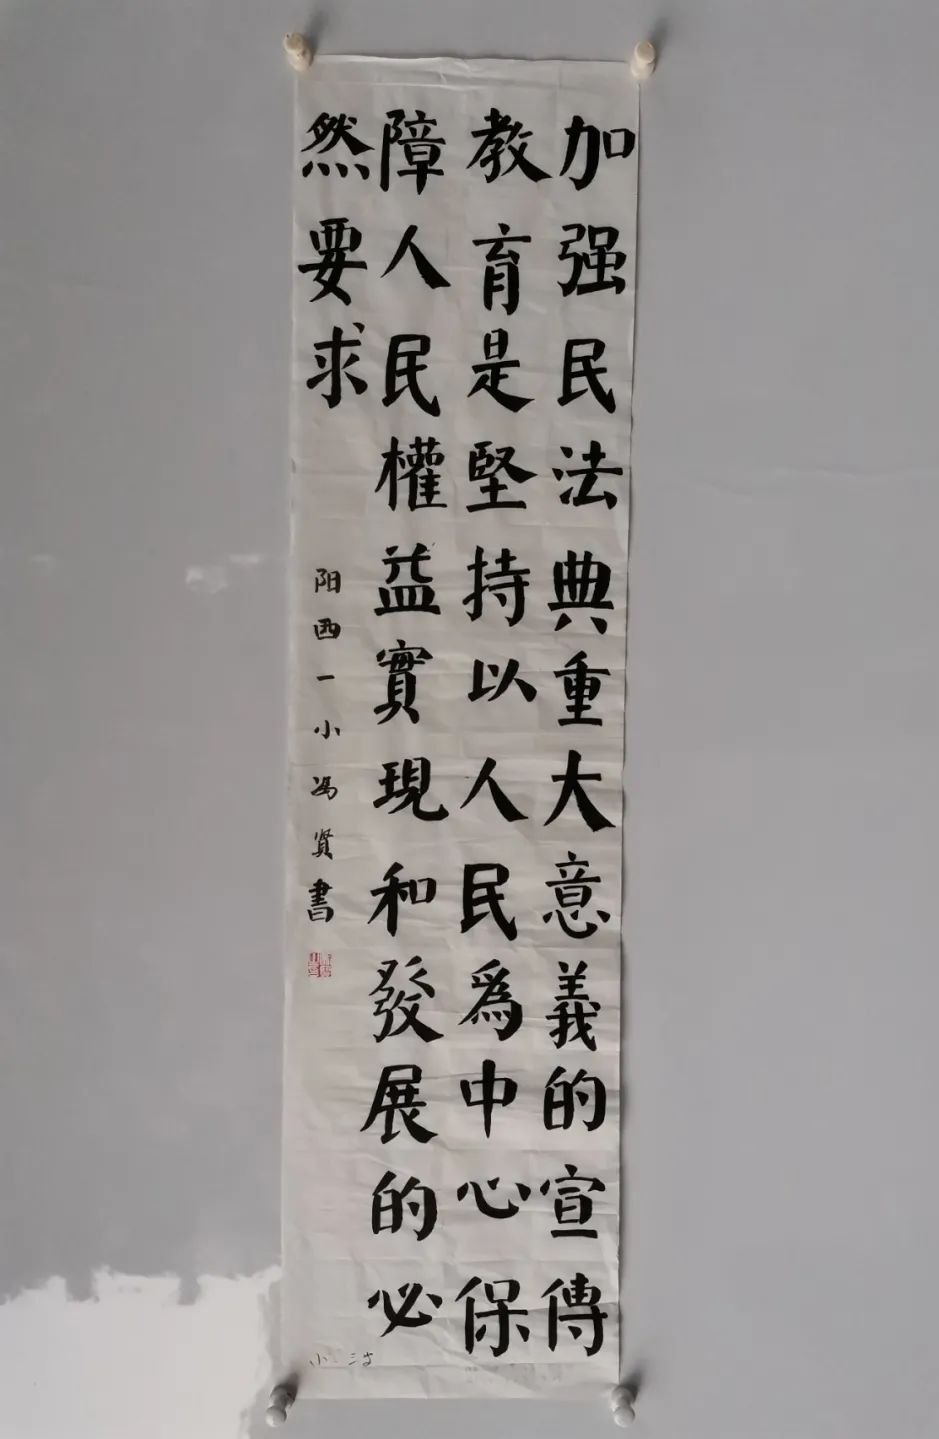 加强民法典重大意義的宣傳
教育是堅持以人民為中心保
障人民權益實現和發展的必
然要求
阳西一小冯贤書